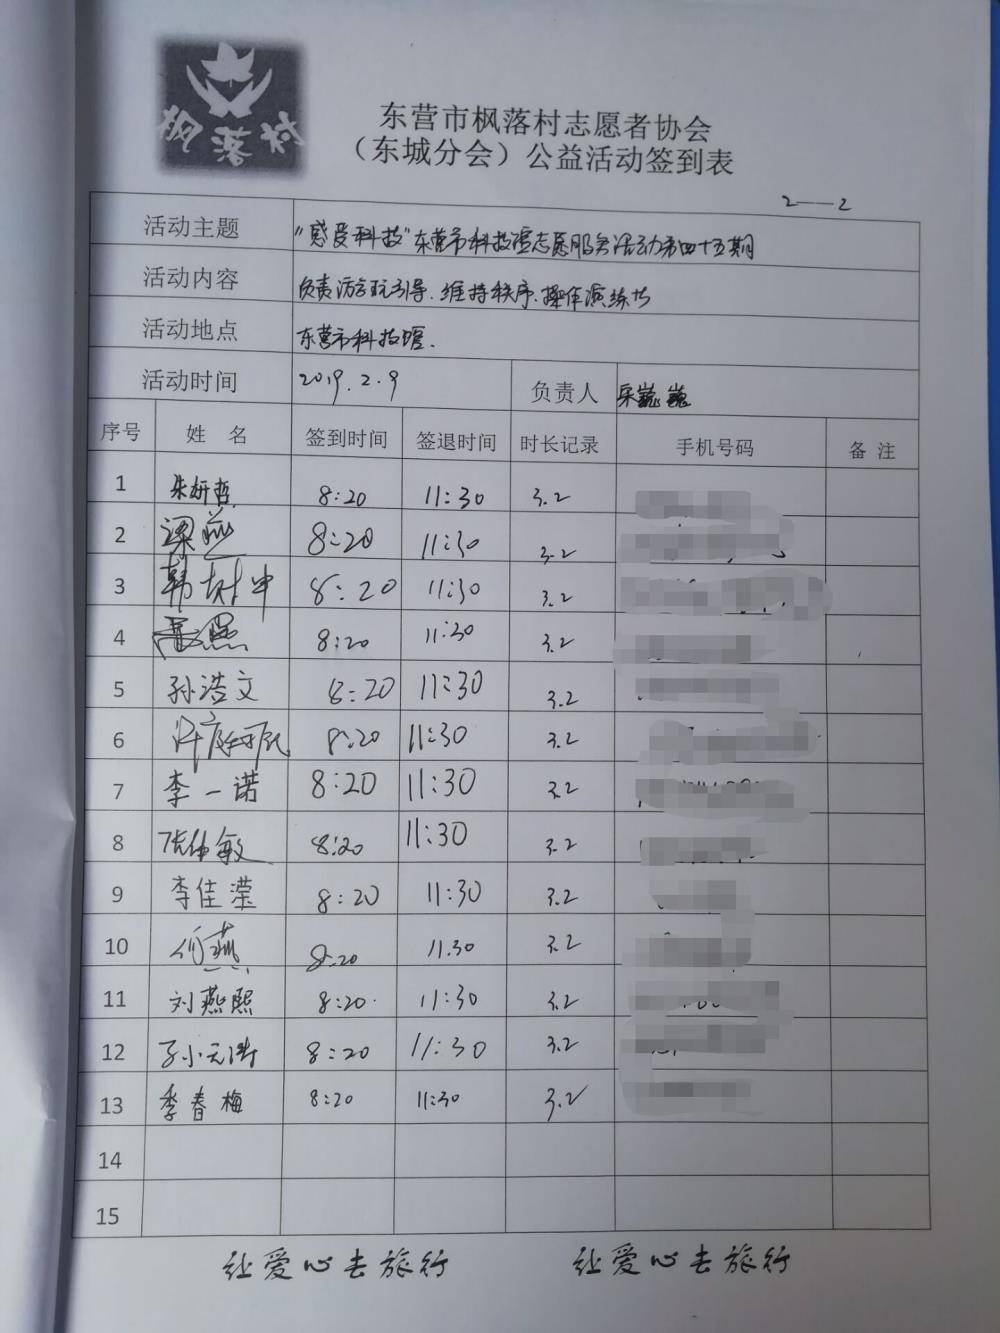 枫落村
东营市枫落村志愿者协会
（东城分会）公益活动签到表
2——2
活动主题 "感受科技"东营市科技馆志愿服务活动第四十五期
活动内容 负责游玩引导.维持秩序.操作演练等
活动地点 东营市科技馆.
活动时间 2019.2.9 负责人
序号 姓 名 签到时间 签退时间 时长记录 手机号码 备 注
1 朱妍哲 8:20 11:30 3.2
2 梁燕 8:20 11:30 3.2
3 韩 8:20 11:30 3.2
4 8:20 11:30 3.2
5 孙浩文 8:20 11:30 3.2
6 8:20 11:30 3.2
7 李一诺 8:20 11:30 3.2
8 张 敏 8:20 11:30 3.2
9 李佳滢 8:20 11:30 3.2
10 何燕 8:20 11:30 3.2
11 刘燕熙 8:20 11:30 3.2
12 8:20 11:30 3.2
13 季春梅 8:20 11:30 3.2
14
15
让爱心去旅行 让爱心去旅行